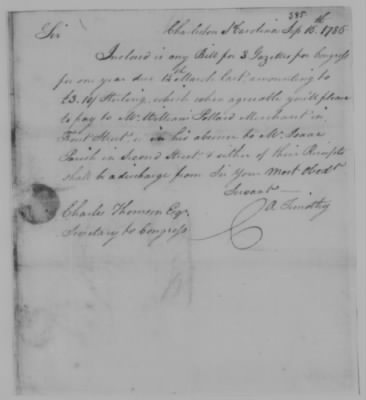 385
Charleston S Carolina Sep 15th 1786
Sir
Inclosed is my Bill for 3 Gazettes for Congress
for one year due 12th March last amounting to
£3. 10/ Sterling, which when agreeable you'll please
to pay to Mr. William Pollard Merchant in
Front Street, or in his absence to Mr. Isaac
Parish in Second Street & either of their Receipts
shall be a discharge from Sir Your Most Obedt
Servant
A Timothy
Charles Thomson Esqr.
Secretary to Congress